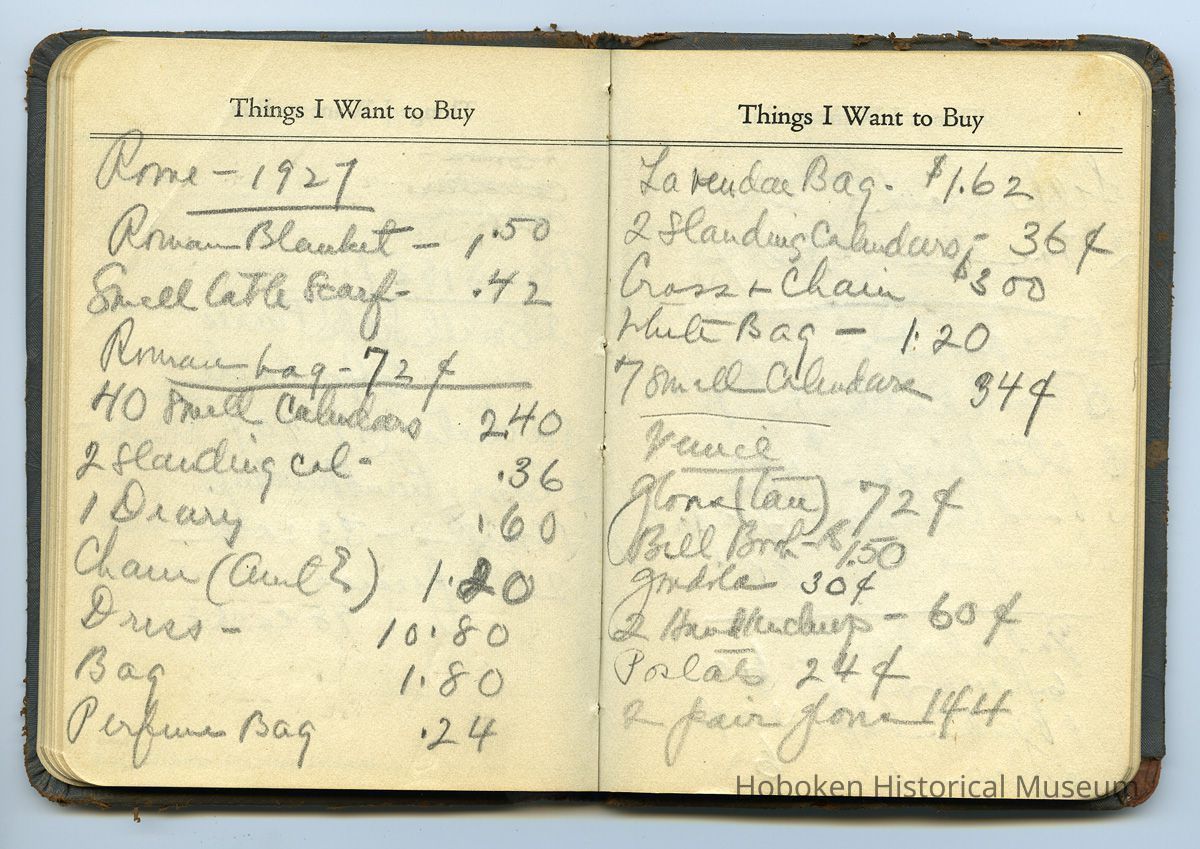 Things I Want to Buy
Rome - 1927
Roman Blanket - 1.50
Small Cattle Scarf - .42
Roman bag - 72¢
40 Small Calendars 2.40
2 Standing cal - .36
1 Diary .60
Chain (Aunt E) 1.20
Dress - 10.80
Bag 1.80
Perfume Bag .24
Things I Want to Buy
Lavendar Bag - $1.62
2 Standing Calendars - 36¢
Cross & Chain $3 00
White Bag - 1.20
7 Small Calendars 34¢
Venice
Gloves (tan) 72¢
Bill Book - $1.50
Gondola 30¢
2 Handkerchiefs - 60¢
Postals 24¢
2 pair gloves 144
Hoboken Historical Museum